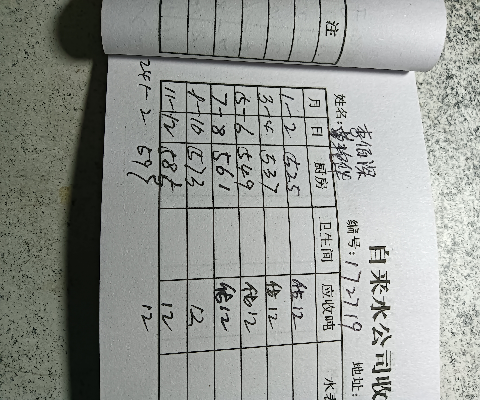 注
自来水公司收
姓名: 李伯深 编号: 172719 地址:
月 日 厨房 卫生间 应收吨 水
1-2 525 12
3-4 537 12
5-6 549 12
7-8 561 12
9-10 573 12
11-12 585 12
24 1-2 597 12